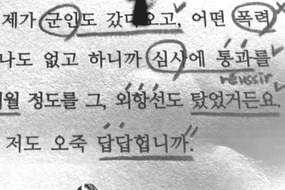 제가 군인도 갔다 오고, 어떤 폭력
나도 없고 하니까 심사에 통과를
réussir
월 정도를 그, 외항선도 탔었거든요.
저도 오죽 답답헙니까.